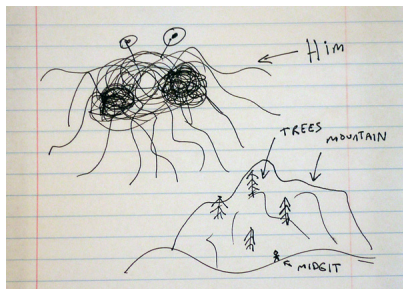 HIM
TREES
MOUNTAIN
MIDGIT